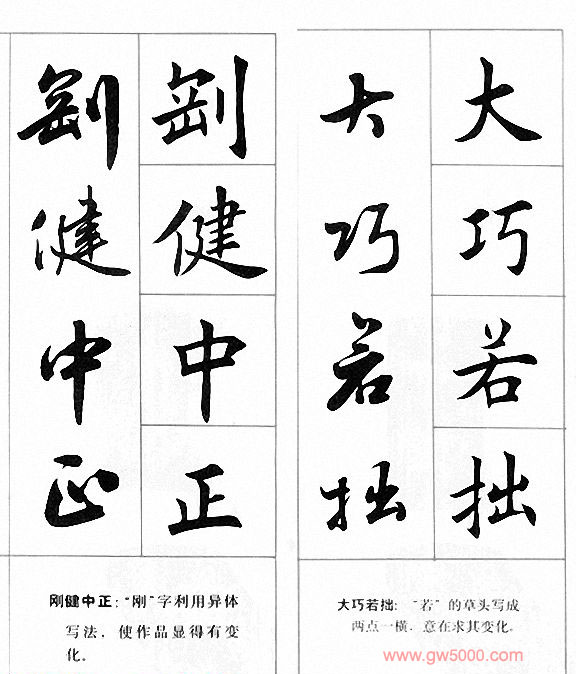 大巧若拙
大巧若拙
大巧若拙:“若”的草头写成
两点一横,意在求其变化。
剛健中正
剛健中正
刚健中正:“刚”字利用异体
写法,使作品显得有变
化。
www.gw5000.com